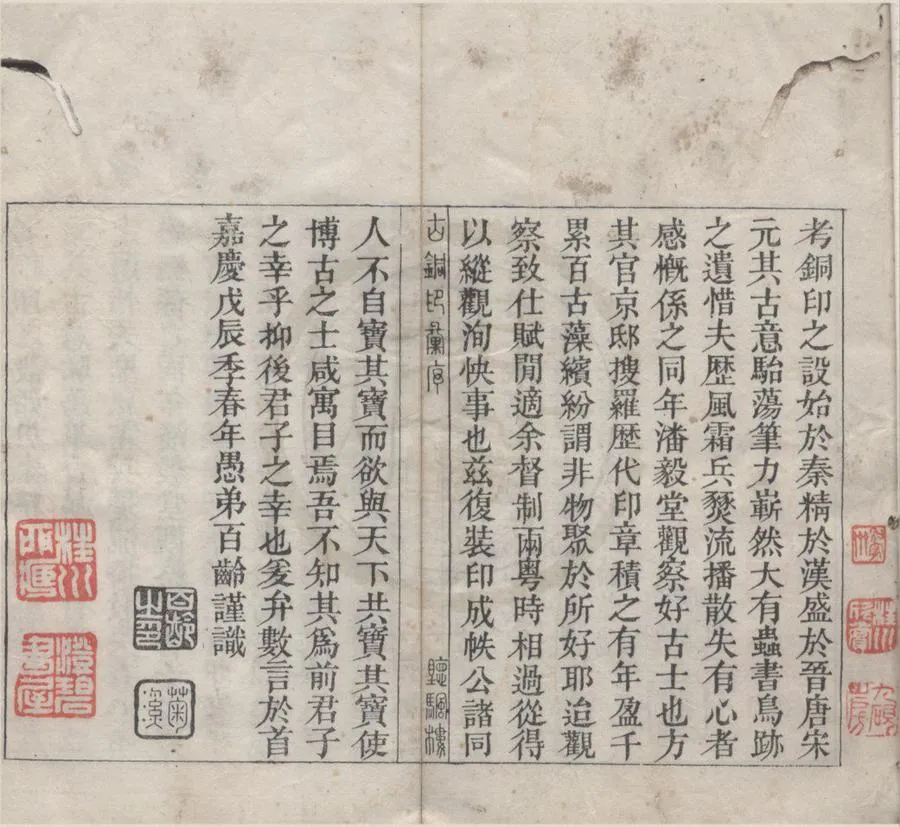 考銅印之設始於秦精於漢盛於晋唐宋
元其古意駘蕩筆力嶄然大有蟲書鳥跡
之遺惜夫歴風霜兵燹流播散失有心者
感慨係之同年潘毅堂觀察好古士也方
其官京邸搜羅歴代印章積之有年盈千
累百古藻繽紛謂非物聚於所好耶迨觀
察致仕賦閒適余督制兩粵時相過從得
以縱觀洵快事也茲復裝印成帙公諸同
古銅印彙序
聽颿樓
人不自寶其寶而欲與天下共寶其寶使
博古之士咸寓目焉吾不知其爲前君子
之幸乎抑後君子之幸也爰弁數言於首
嘉慶戊辰季春年愚弟百齡謹識
百齡之印
菊溪
桂川
澄碧書屋